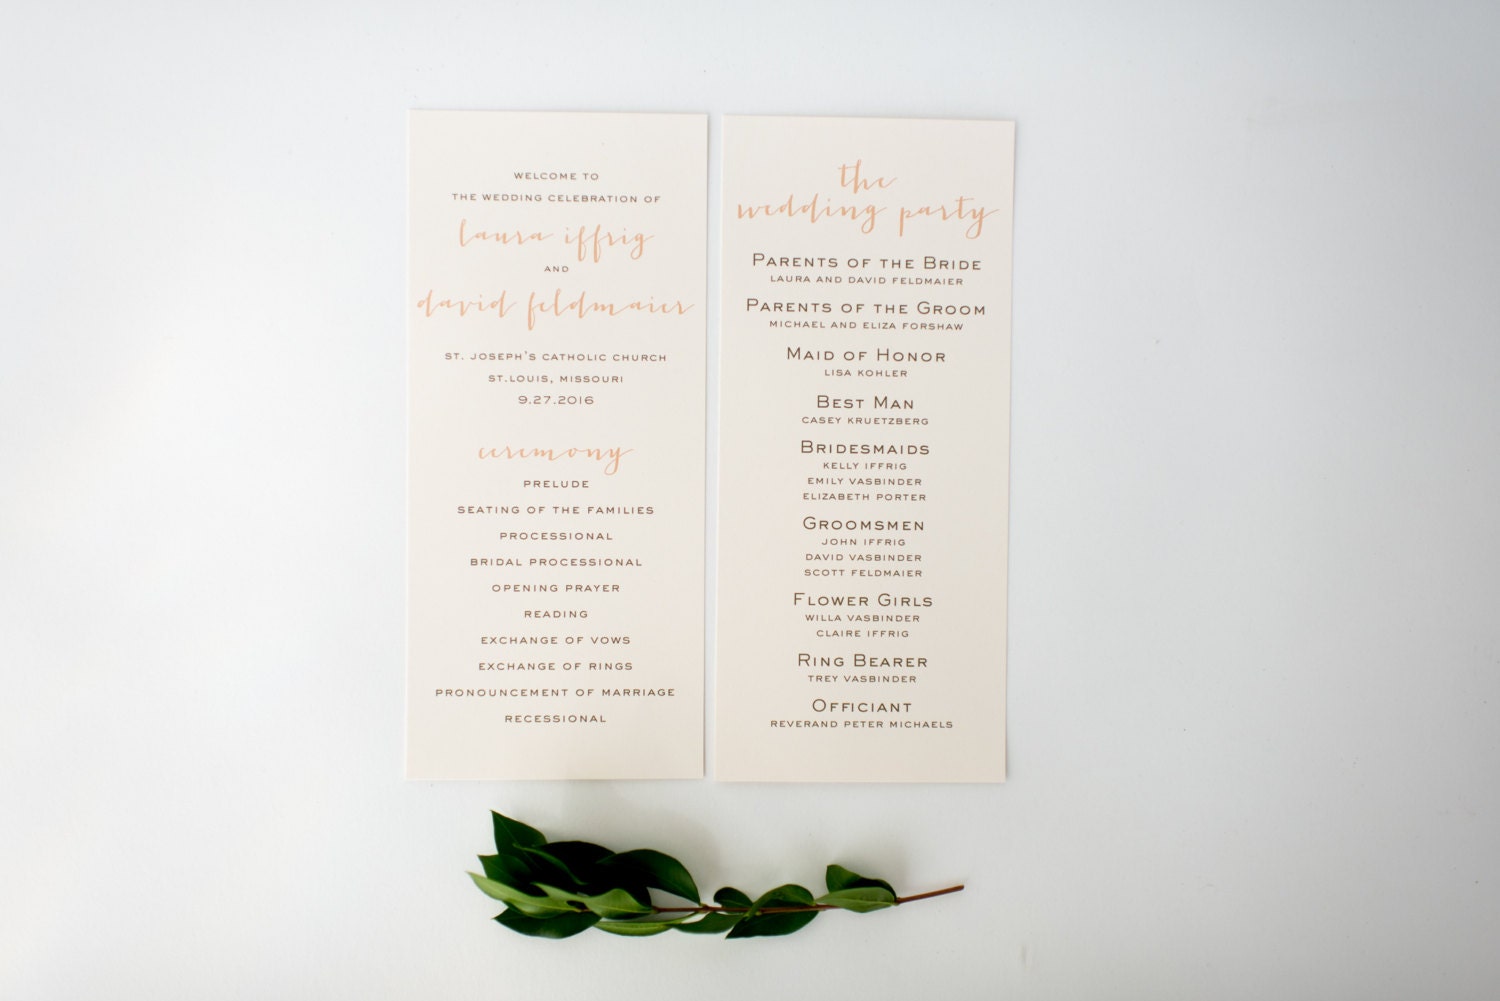 WELCOME TO
THE WEDDING CELEBRATION OF
laura iffrig
AND
david feldmaier
ST. JOSEPH'S CATHOLIC CHURCH
ST.LOUIS, MISSOURI
9.27.2016
ceremony
PRELUDE
SEATING OF THE FAMILIES
PROCESSIONAL
BRIDAL PROCESSIONAL
OPENING PRAYER
READING
EXCHANGE OF VOWS
EXCHANGE OF RINGS
PRONOUNCEMENT OF MARRIAGE
RECESSIONAL
the
wedding party
PARENTS OF THE BRIDE
LAURA AND DAVID FELDMAIER
PARENTS OF THE GROOM
MICHAEL AND ELIZA FORSHAW
MAID OF HONOR
LISA KOHLER
BEST MAN
CASEY KRUETZBERG
BRIDESMAIDS
KELLY IFFRIG
EMILY VASBINDER
ELIZABETH PORTER
GROOMSMEN
JOHN IFFRIG
DAVID VASBINDER
SCOTT FELDMAIER
FLOWER GIRLS
WILLA VASBINDER
CLAIRE IFFRIG
RING BEARER
TREY VASBINDER
OFFICIANT
REVERAND PETER MICHAELS